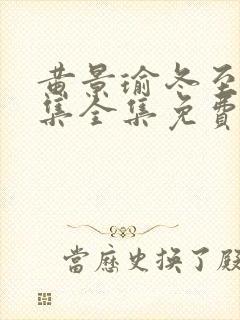 黄景瑜冬至
集全集免費
當歷史換了殿